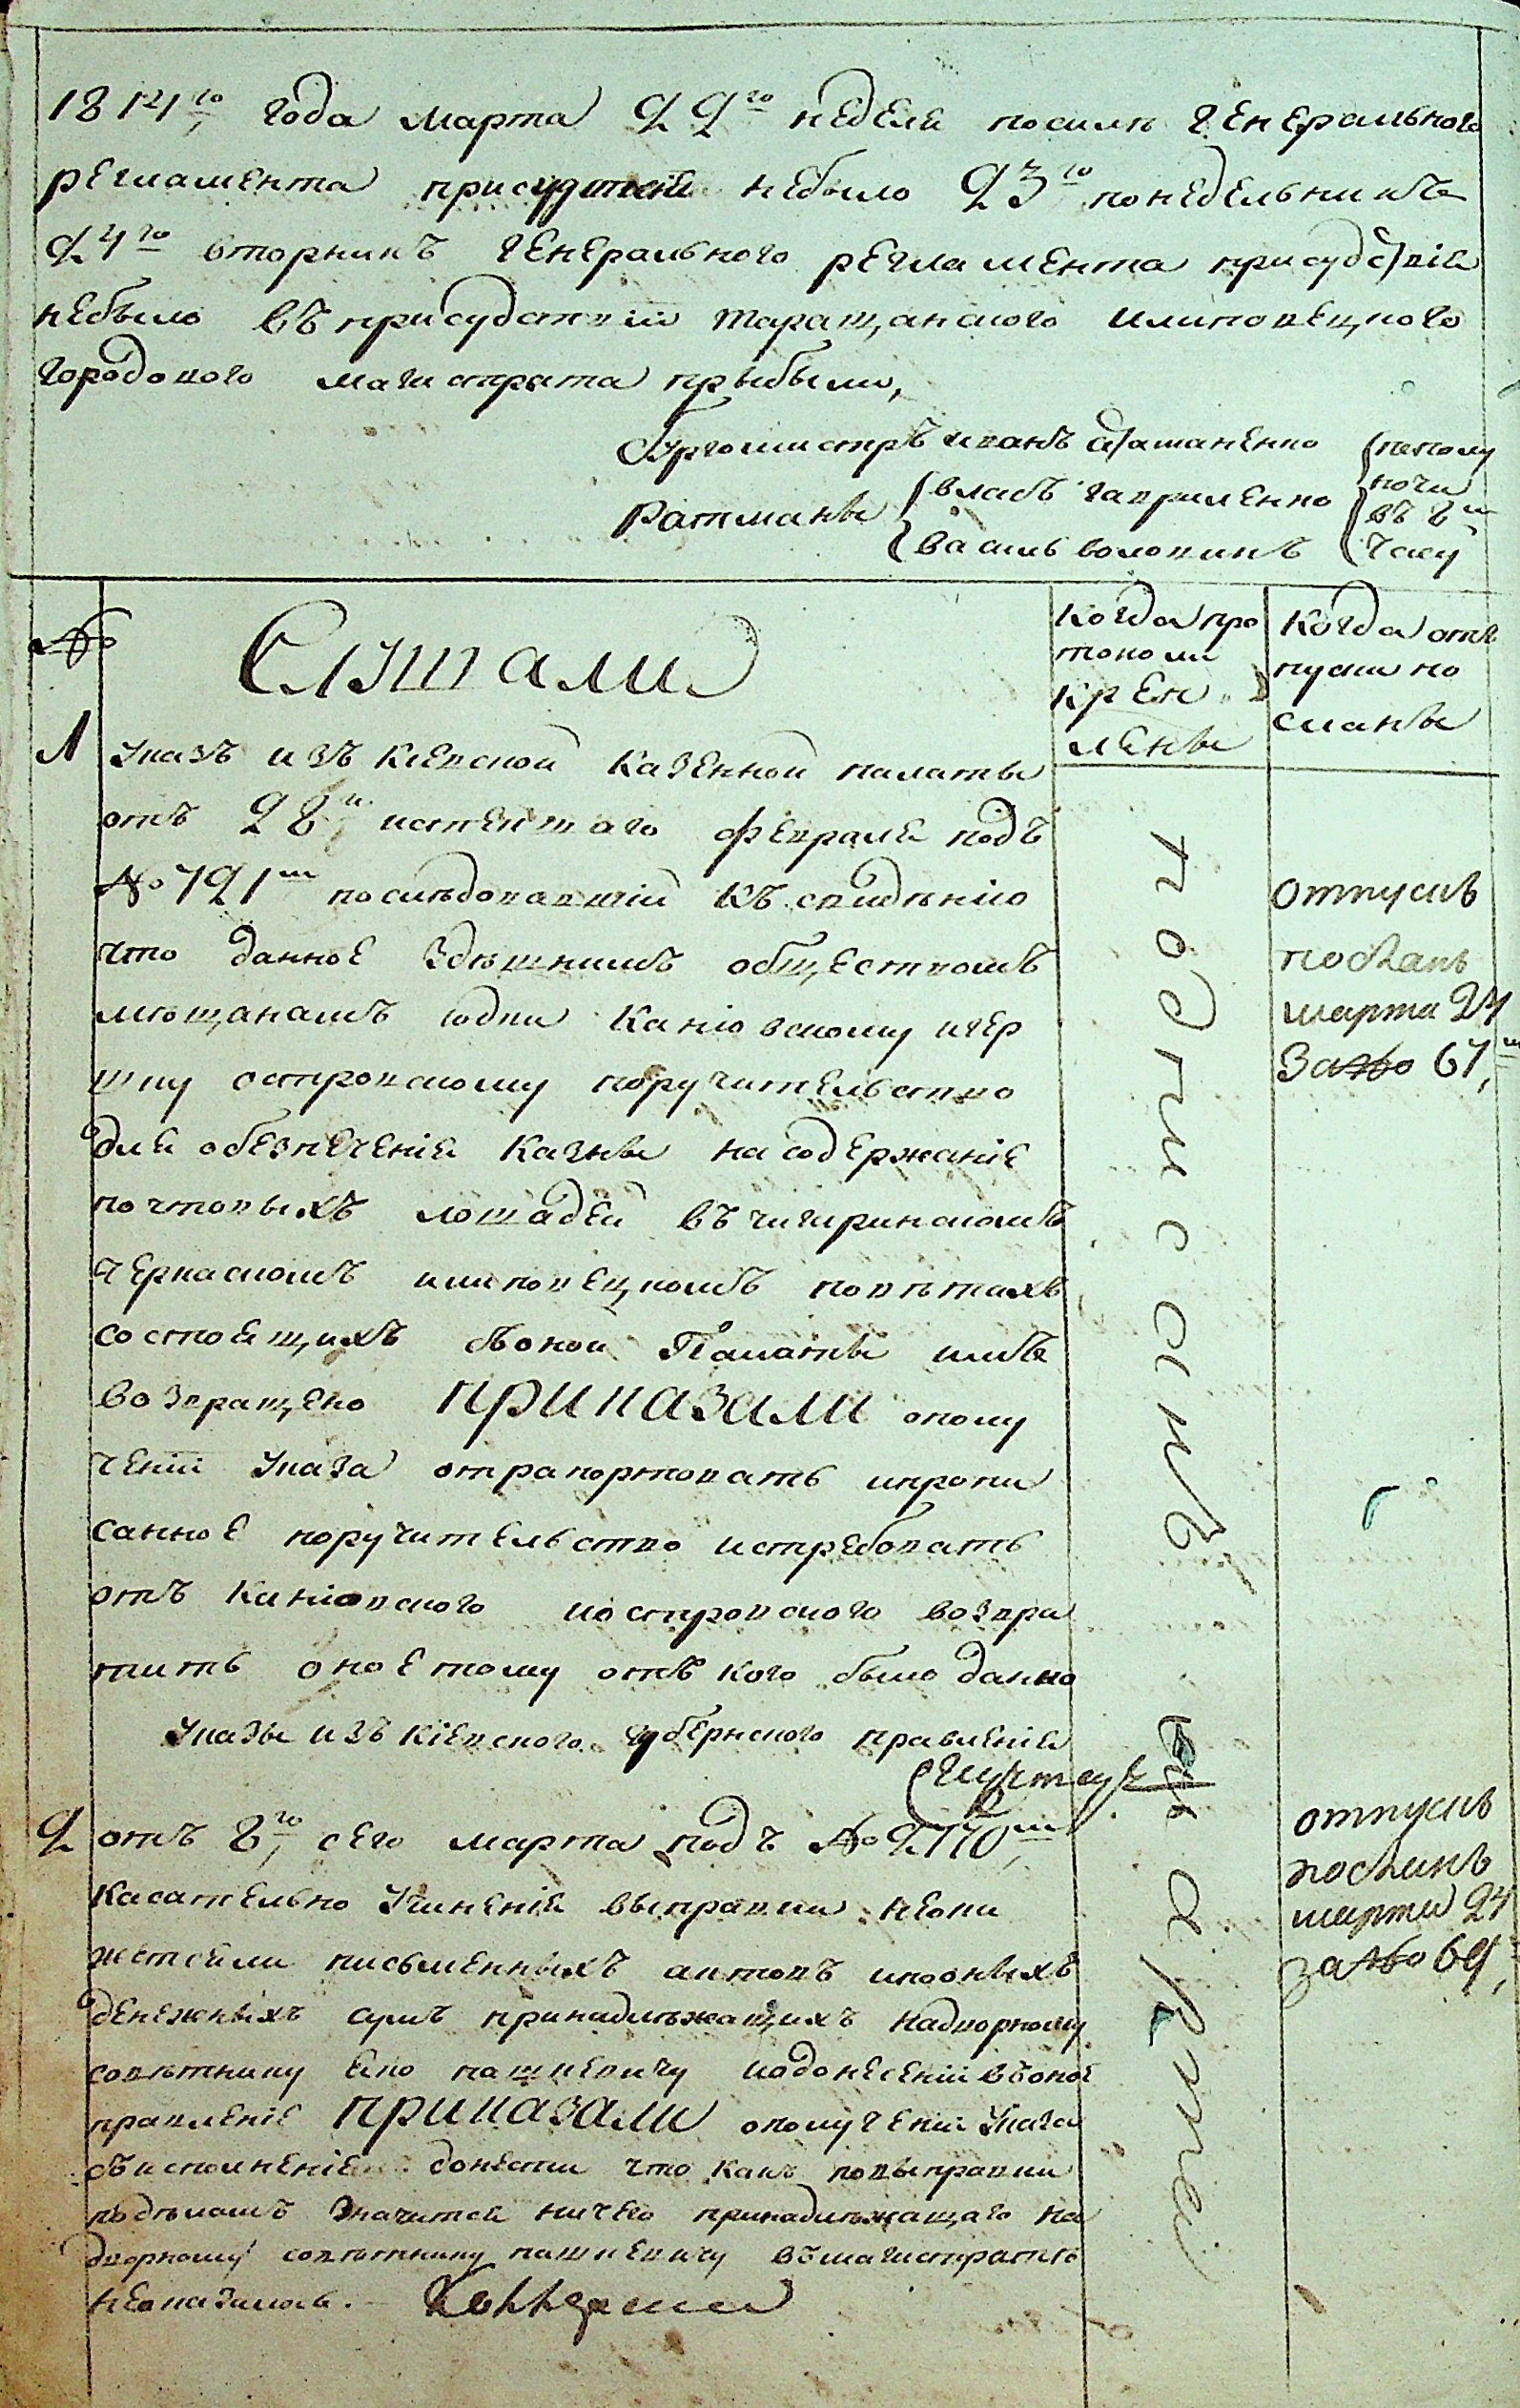 1814го года марта 22го неделя посилѣ генерального
регламента присудствія небыло 23го понедельникъ
24го вторникъ генерального регламента присудствія
небыло въ присудствіи таращанского илиповецкого
городового магистрата прыбыли,
Бургомистръ иванъ
Ратманы
власъ гавриленко
василь воловикъ
пополу
ночи
въ 8м
часу
№
Слушали
Когда про
токоли
крѣп
лены
Когда отъ
пуски по
сланы
1
указъ изъ кіевской казенной палаты
отъ 28го истекшаго февраля подъ
№ 721м последовавшій къ свидѣнію
что данное здѣшнимъ обществомъ
мѣщанамъ іодки каніовскому игер
шку островскому поручительство
для обезпеченія казны на содержаніе
почтовыхъ лошадей въ чигиринскомъ
черкаскомъ илиповецкомъ повѣтахъ
состоящихъ съоной Палаты имъ
возвращено приказали ополу
ченіи указа отрапортовать ипропи
санное поручительство истребовать
отъ каніовского иостровского возвра
тить оное тому отъ кого было данно
указы изъ кіевского губернского правленія
2
отъ 8го сего марта подъ № 2770м
касательно учиненія выправки неока
жется ли письменныхъ актовъ илооныхъ
денежныхъ сумъ принадлѣжащихъ надворному
совѣтнику пашкевичу иодонесеніи въоное
правленіе приказали ополученіи указа
съисполненіемъ донести что какъ повыправки
подѣламъ значится ничего принадлѣжащаго на
дворному совѣтнику пашкевичу въмагистратѣ
неоказалось.
подписанъ
отпускъ
посланъ
марта 24
за№ 67м
отпускъ
посланъ
марта 24
за№ 69,